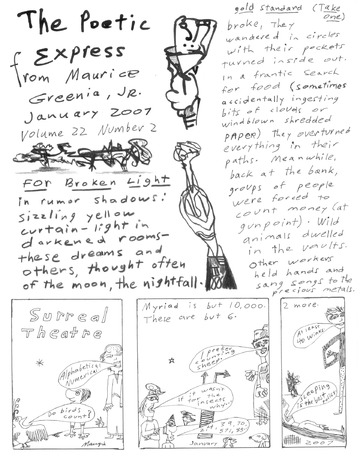 The Poetic
Express
from Maurice
Greenia, Jr.
January 2007
Volume 22 Number 2
For Broken Light
in rumor shadows:
sizzling yellow
curtain-light in
darkened rooms-
these dreams and
others, thought often
of the moon, the nightfall.
gold standard (Take
one)
broke, They
wandered in circles
with their pockets
turned inside out.
In a frantic search
for food (sometimes
accidentally ingesting
bits of clouds or
windblown shredded
paper) they overturned
everything in their
paths. Meanwhile,
back at the bank,
groups of people
were forced to
count money (at
gunpoint). Wild
animals dwelled
in the vaults.
Other workers
held hands and
sang songs to the
precious metals.
Surreal
Theatre
Alphabetical
Numerical
Do birds
count?
Myriad is but 10,000.
These are but 6.
I prefer
counting
sheep.
January
2 more.
Sleeping
is the best
2007